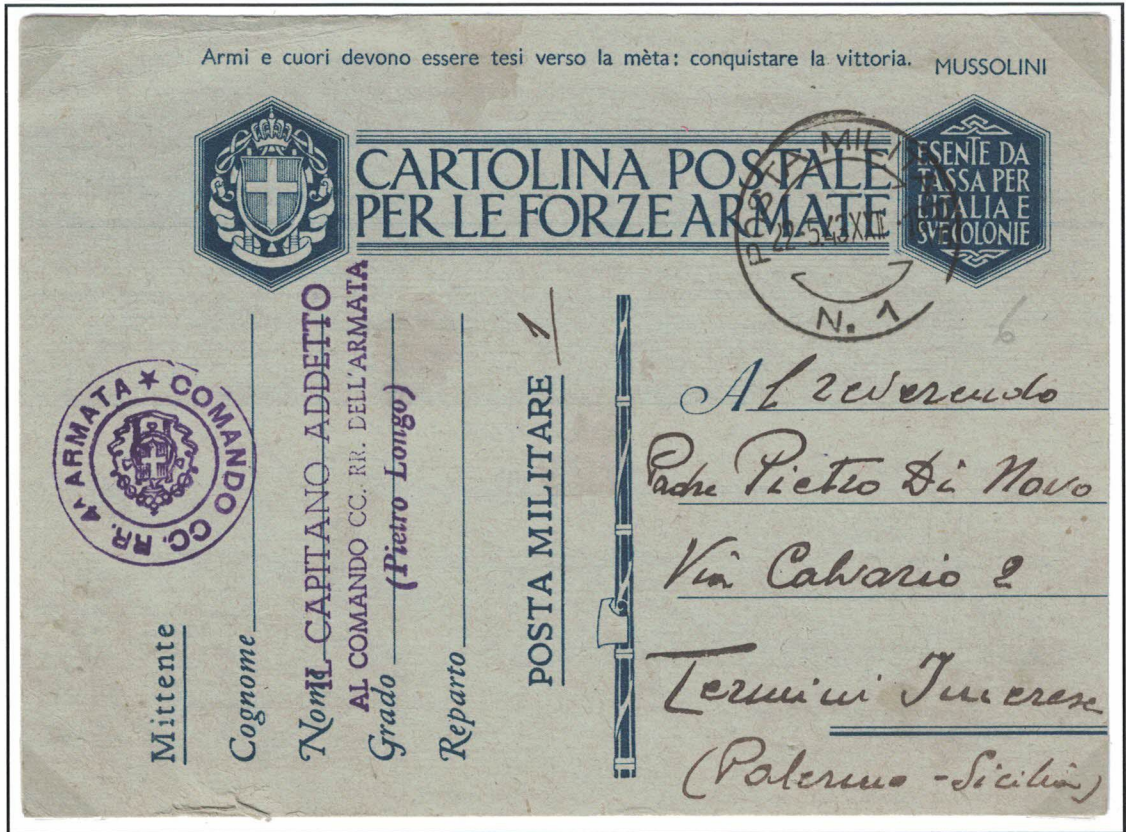 Armi e cuori devono essere tesi verso la mèta: conquistare la vittoria. MUSSOLINI
CARTOLINA POSTALE
PER LE FORZE ARMATE
ESENTE DA
TASSA PER
L'ITALIA E
SUE COLONIE
POSTA MILITARE
22-5.43XXI
N. 1
6
COMANDO CC. RR. 4ᴬ ARMATA ★
Mittente
Cognome
Nome
IL CAPITANO ADDETTO
AL COMANDO CC. RR. DELL'ARMATA
Grado
(Pietro Longo)
Reparto
POSTA MILITARE 1
Al reverendo
Padre Pietro Di Novo
Via Calvario 2
Termini Imerese
(Palermo - Sicilia)